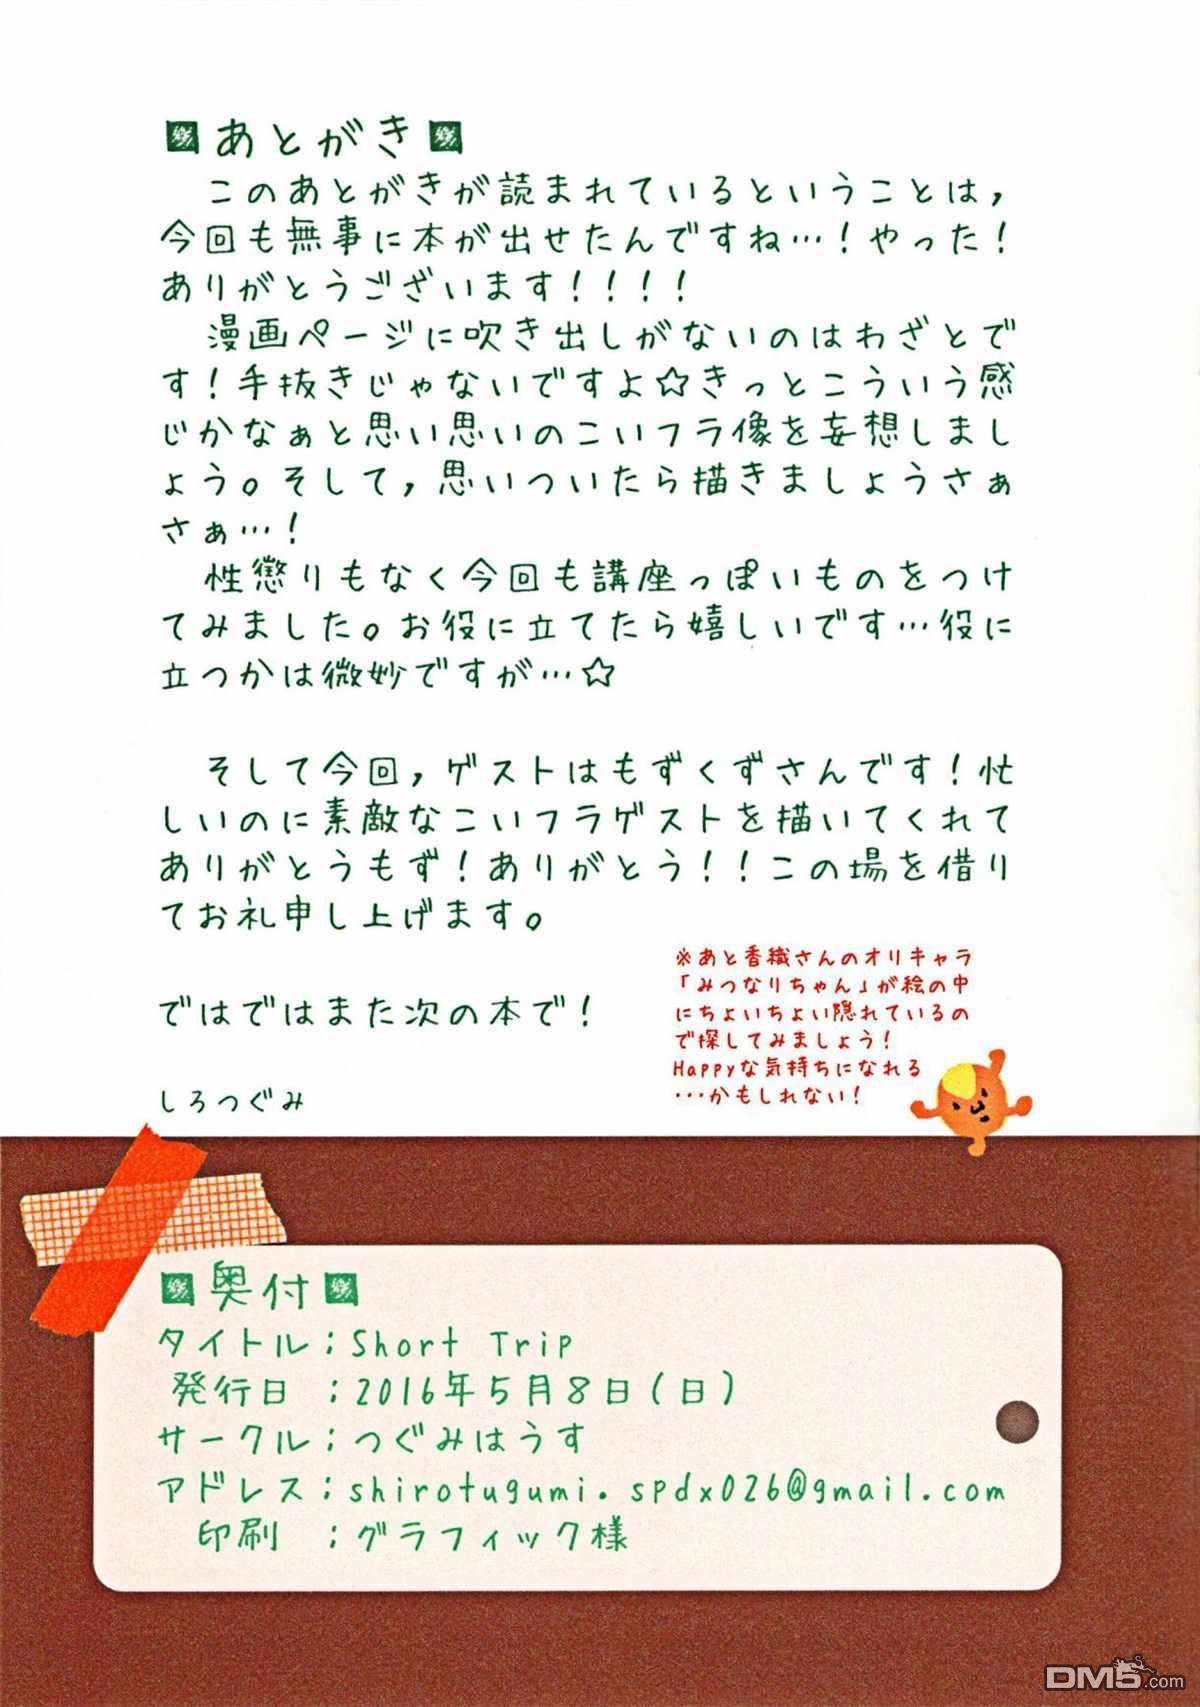 あとがき
このあとがきが読まれているということは，
今回も無事に本が出せたんですね…！やった！
ありがとうございます！！！！
漫画ページに吹き出しがないのはわざとで
す！手抜きじゃないですよ☆きっとこういう感
じかなぁと思い思いのこいフラ像を妄想しまし
ょう。そして，思いついたら描きましょうさぁ
さぁ…！
性懲りもなく今回も講座っぽいものをつけ
てみました。お役に立てたら嬉しいです…役に
立つかは微妙ですが…☆
そして今回，ゲストはもずくずさんです！忙
しいのに素敵なこいフラゲストを描いてくれて
ありがとうもず！ありがとう！！この場を借り
てお礼申し上げます。
ではではまた次の本で！
しろつぐみ
※あと香織さんのオリキャラ
「みつなりちゃん」が絵の中
にちょいちょい隠れているの
で探してみましょう！
Happyな気持ちになれる
…かもしれない！
奥付
タイトル：Short Trip
発行日　：2016年5月8日（日）
サークル：つぐみはうす
アドレス：shirotugumi.spdx026@gmail.com
印刷　：グラフィック様
DM5.com